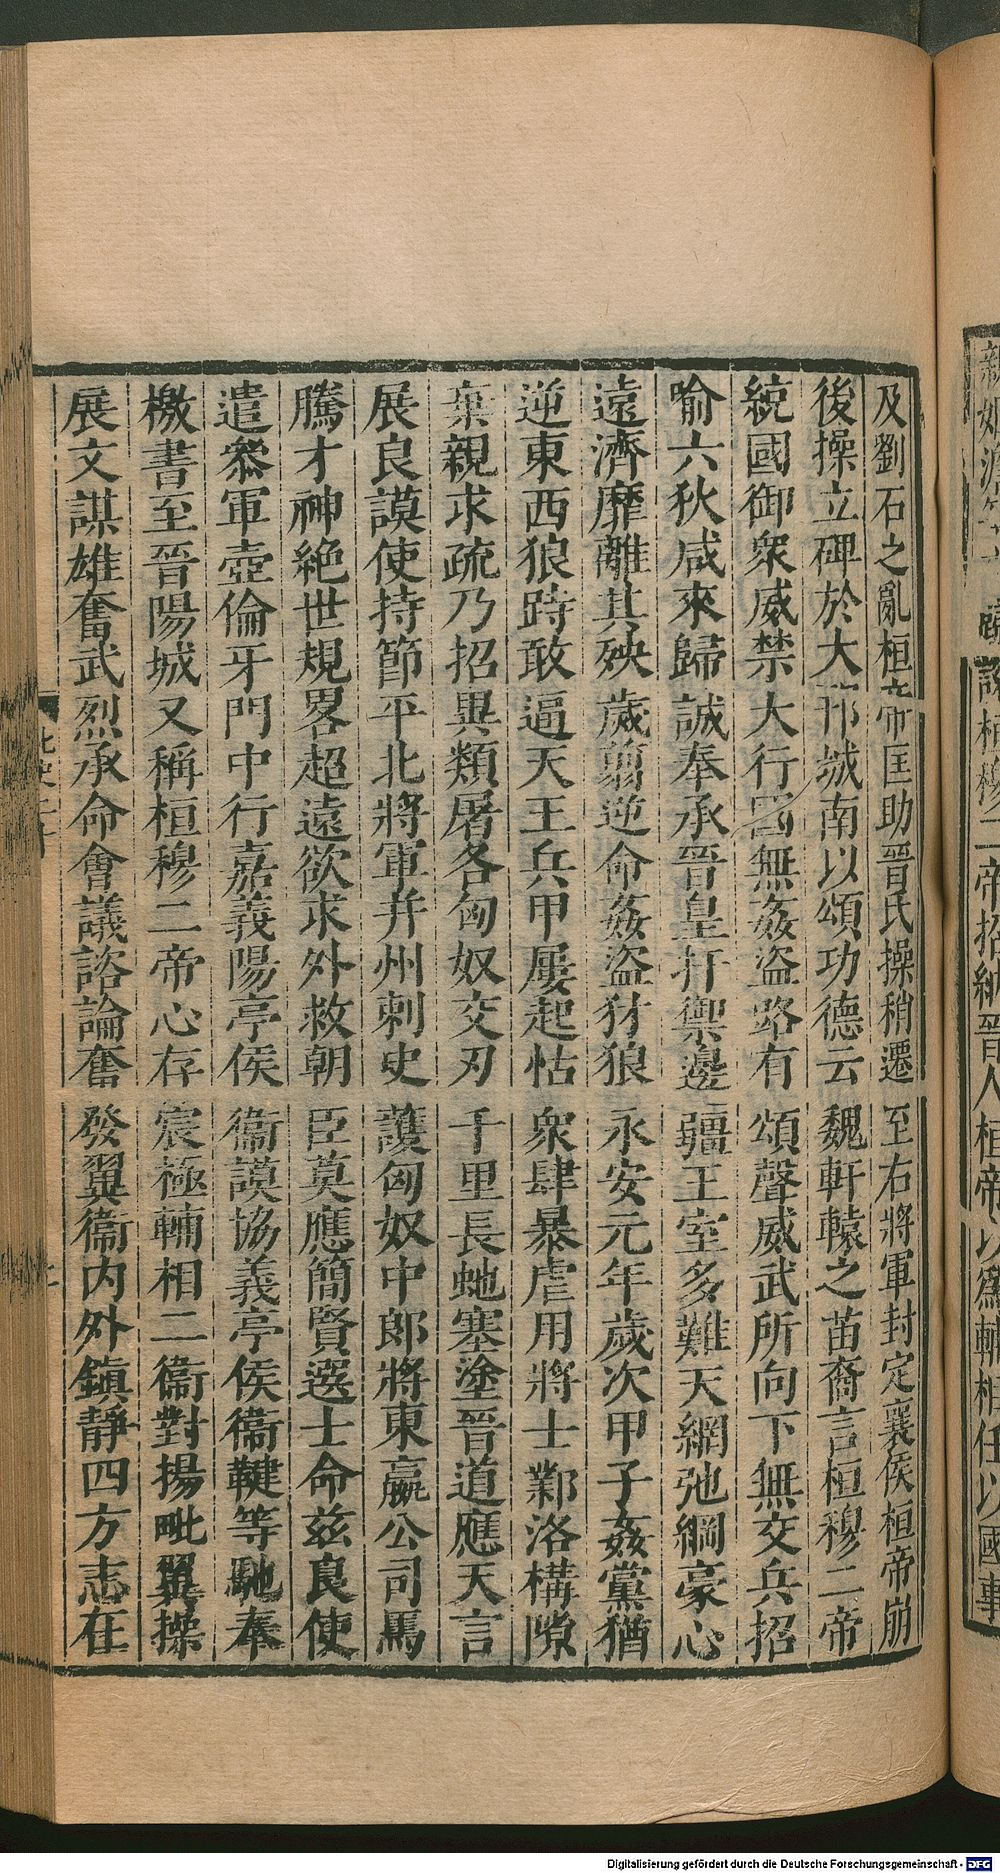 及劉石之亂桓帝匡助晉氏操稍遷至右將軍封定襄侯桓帝崩
後操立碑於大邗城南以頌功德云魏軒轅之苗裔言桓穆二帝
統國御衆威禁大行囯無姦盜路有頌聲威武所向下無交兵招
喻六狄咸來歸誠奉承晉皇扞禦邊疆王室多難天網弛綱豪心
遠濟靡離其殃歲翦逆命姦盜犲狼永安元年歲次甲子姦黨猶
逆東西狼跱敢逼天王兵甲屢起怙衆肆暴虐用將士鄴洛構隙
棄親求疏乃招異類屠各匈奴交刃千里長虵塞塗晉道應天言
展良謨使持節平北將軍并州刺史護匈奴中郎將東嬴公司馬
騰才神絶世規畧超遠欲求外救朝臣莫應簡賢選士命兹良使
遣叅軍壺倫牙門中行嘉義陽亭侯衞謨協義亭侯衞鞬等馳奉
檄書至晉陽城又稱桓穆二帝心存宸極輔相二衞對揚毗翼操
展文謀雄奮武烈承命會議諮論奮發翼衞内外鎮靜四方志在
桓穆二帝招納晉人桓帝以爲輔相任以國事
Digitalisierung gefördert durch die Deutsche Forschungsgemeinschaft - DFG